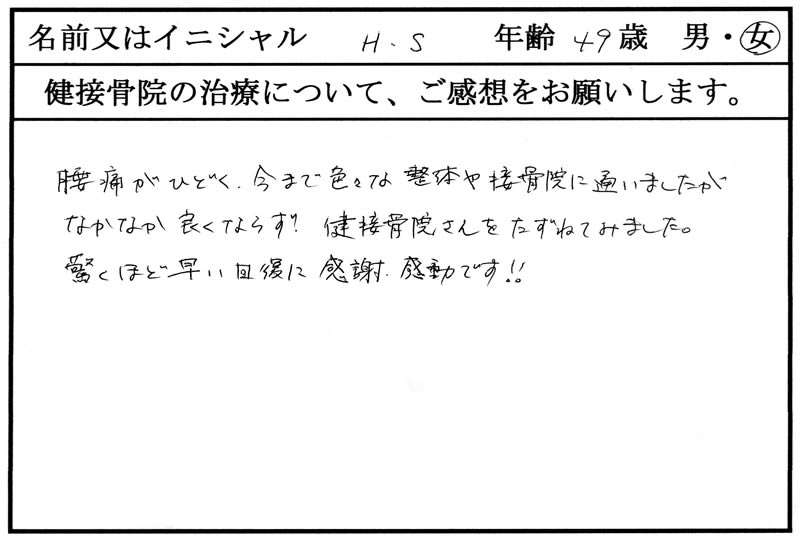 名前又はイニシャル H.S 年齢 49歳 男・女
健接骨院の治療について、ご感想をお願いします。
腰痛がひどく、今まで色々な整体や接骨院に通いましたが
なかなか良くならず、健接骨院さんをたずねてみました。
驚くほど早い回復に感謝、感動です!!